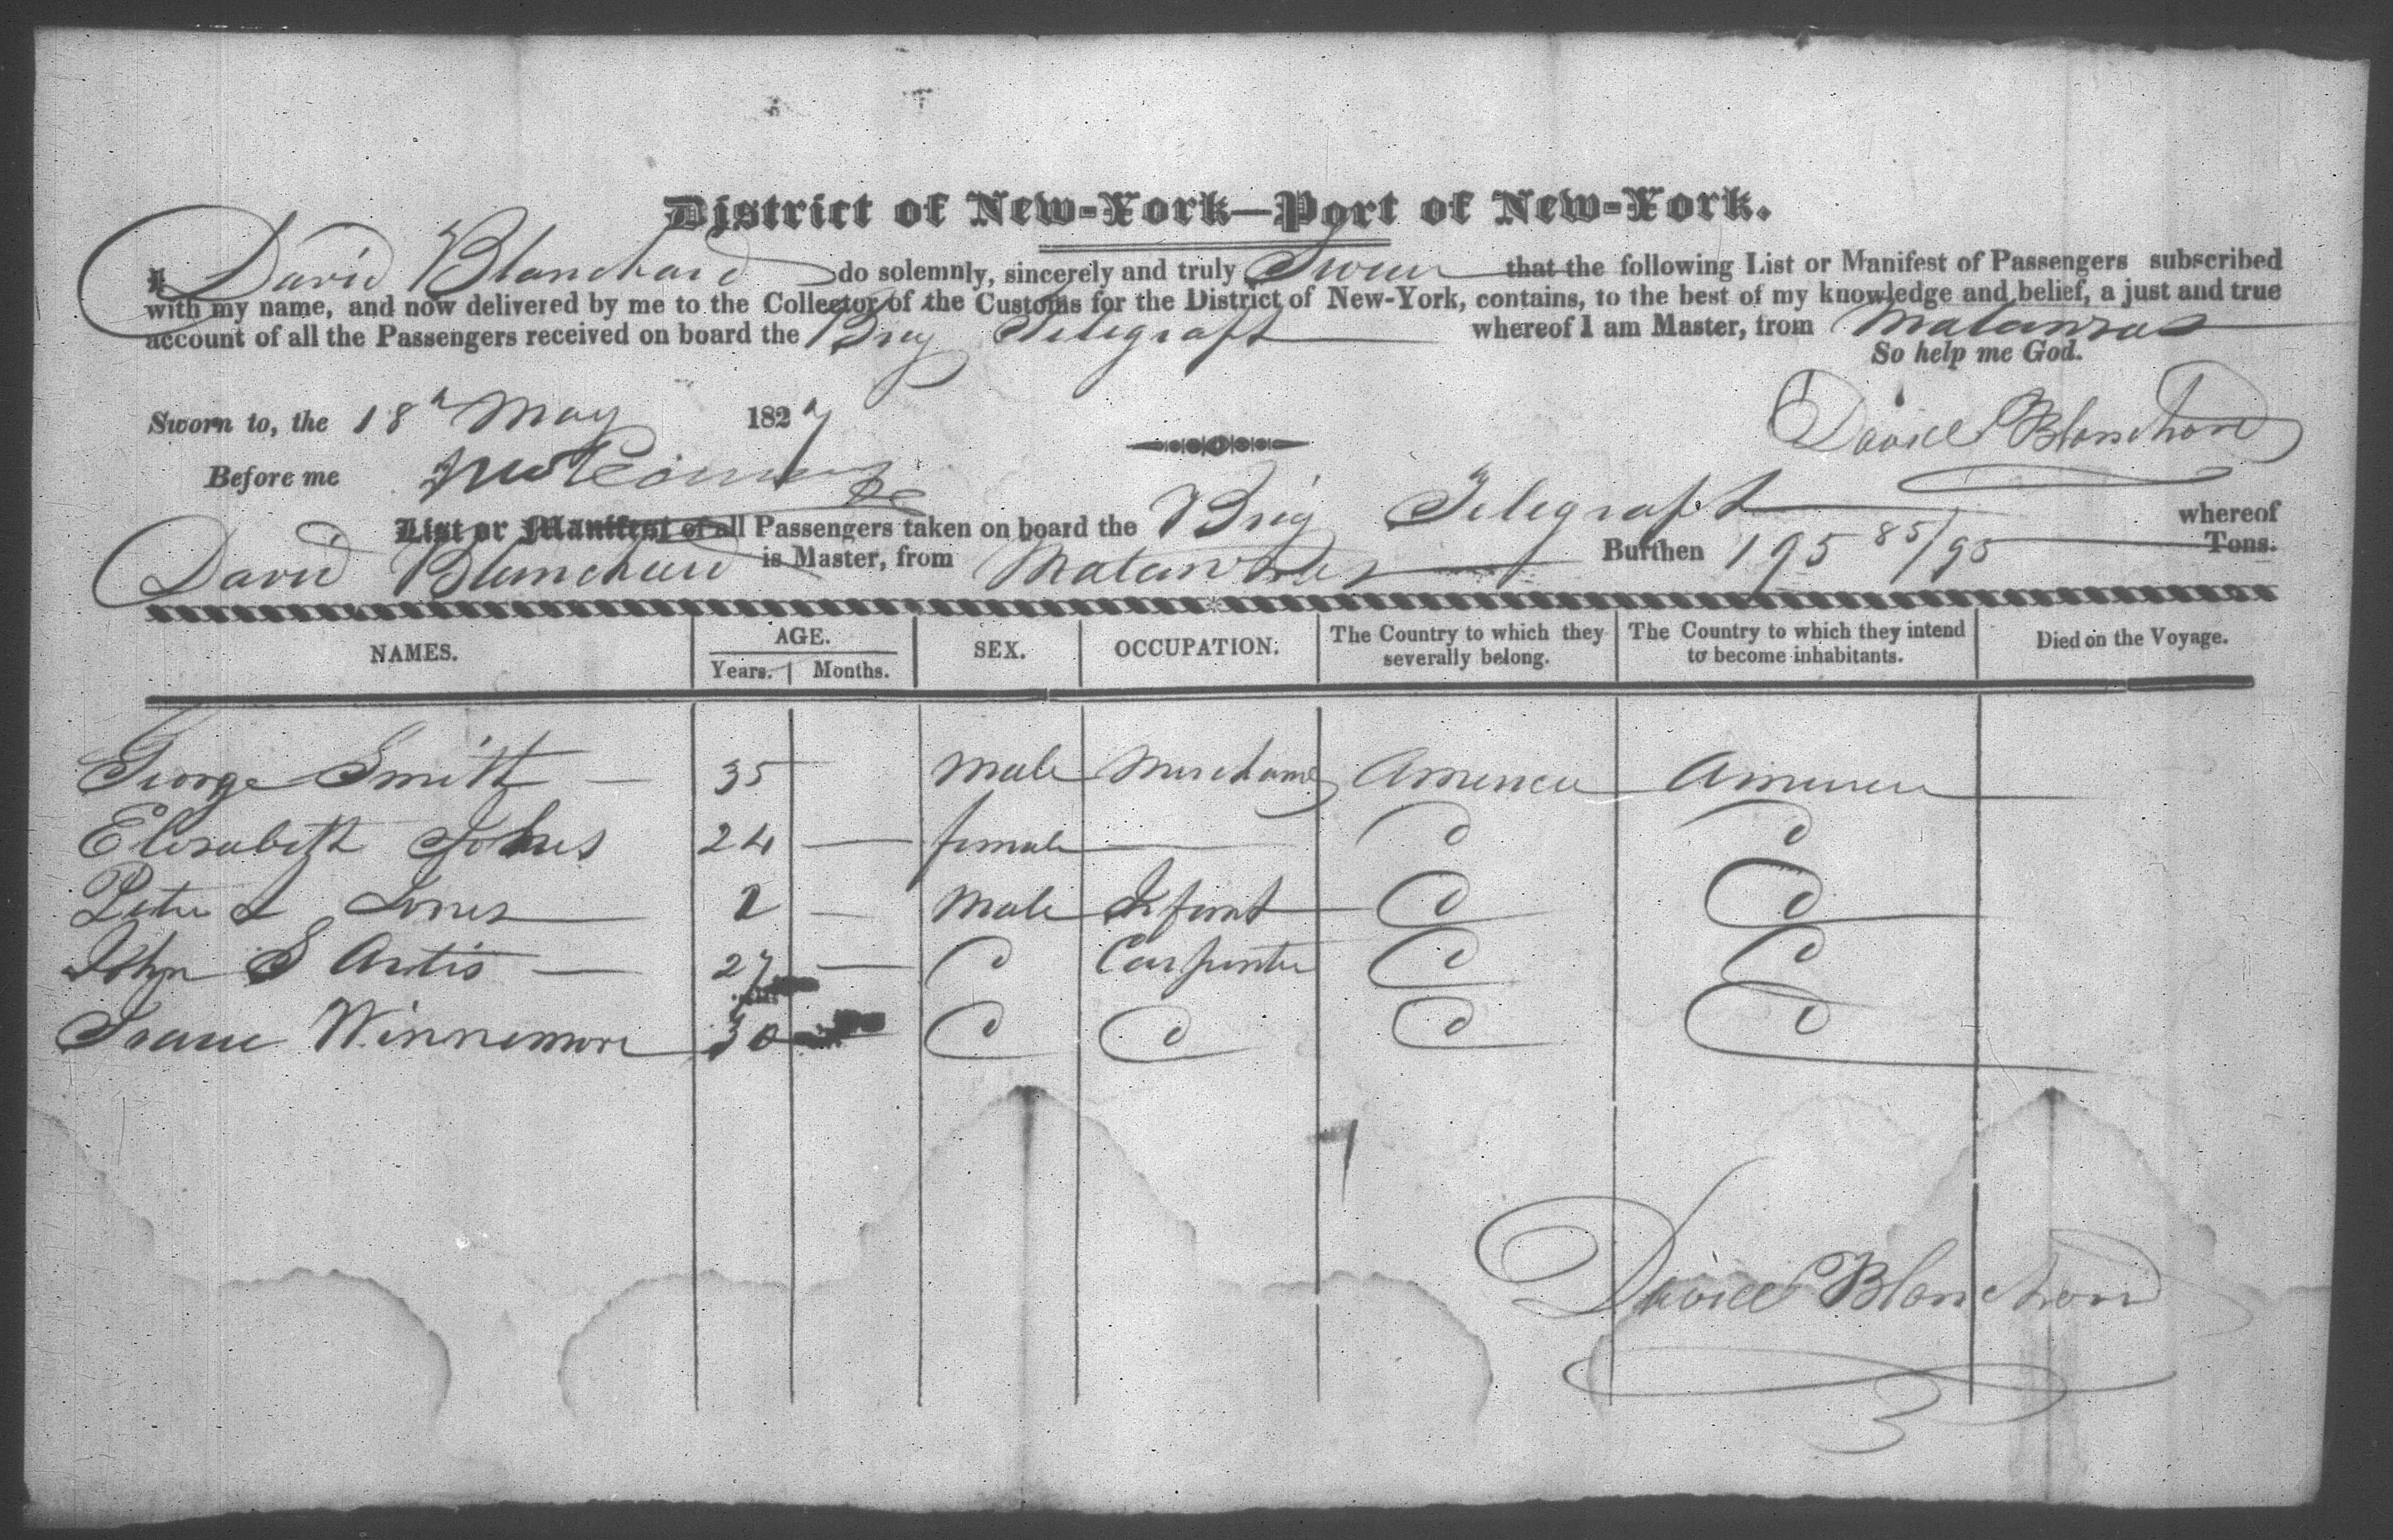 District of New-York—Port of New-York.
I David Blanchard do solemnly, sincerely and truly Swear that the following List or Manifest of Passengers subscribed
with my name, and now delivered by me to the Collector of the Customs for the District of New-York, contains, to the best of my knowledge and belief, a just and true
account of all the Passengers received on board the Brig Telegraft whereof I am Master, from Matanzas
So help me God.
Sworn to, the 18th May 1827
David Blanchard
Before me
List or Manifest of all Passengers taken on board the Brig Telegraft whereof
David Blanchard is Master, from Matanzas Burthen 195 85/95 Tons.
NAMES. AGE. SEX. OCCUPATION. The Country to which they severally belong. The Country to which they intend to become inhabitants. Died on the Voyage.
Years. Months.
George Smith — 35 Male Merchant America America
Elizabeth 24 — female — d d
Peter L Jones 2 — Male Infant d d
John S Artis — 27 — d Carpenter d d
Isaac Winnemore 30 d d d d
David Blanchard